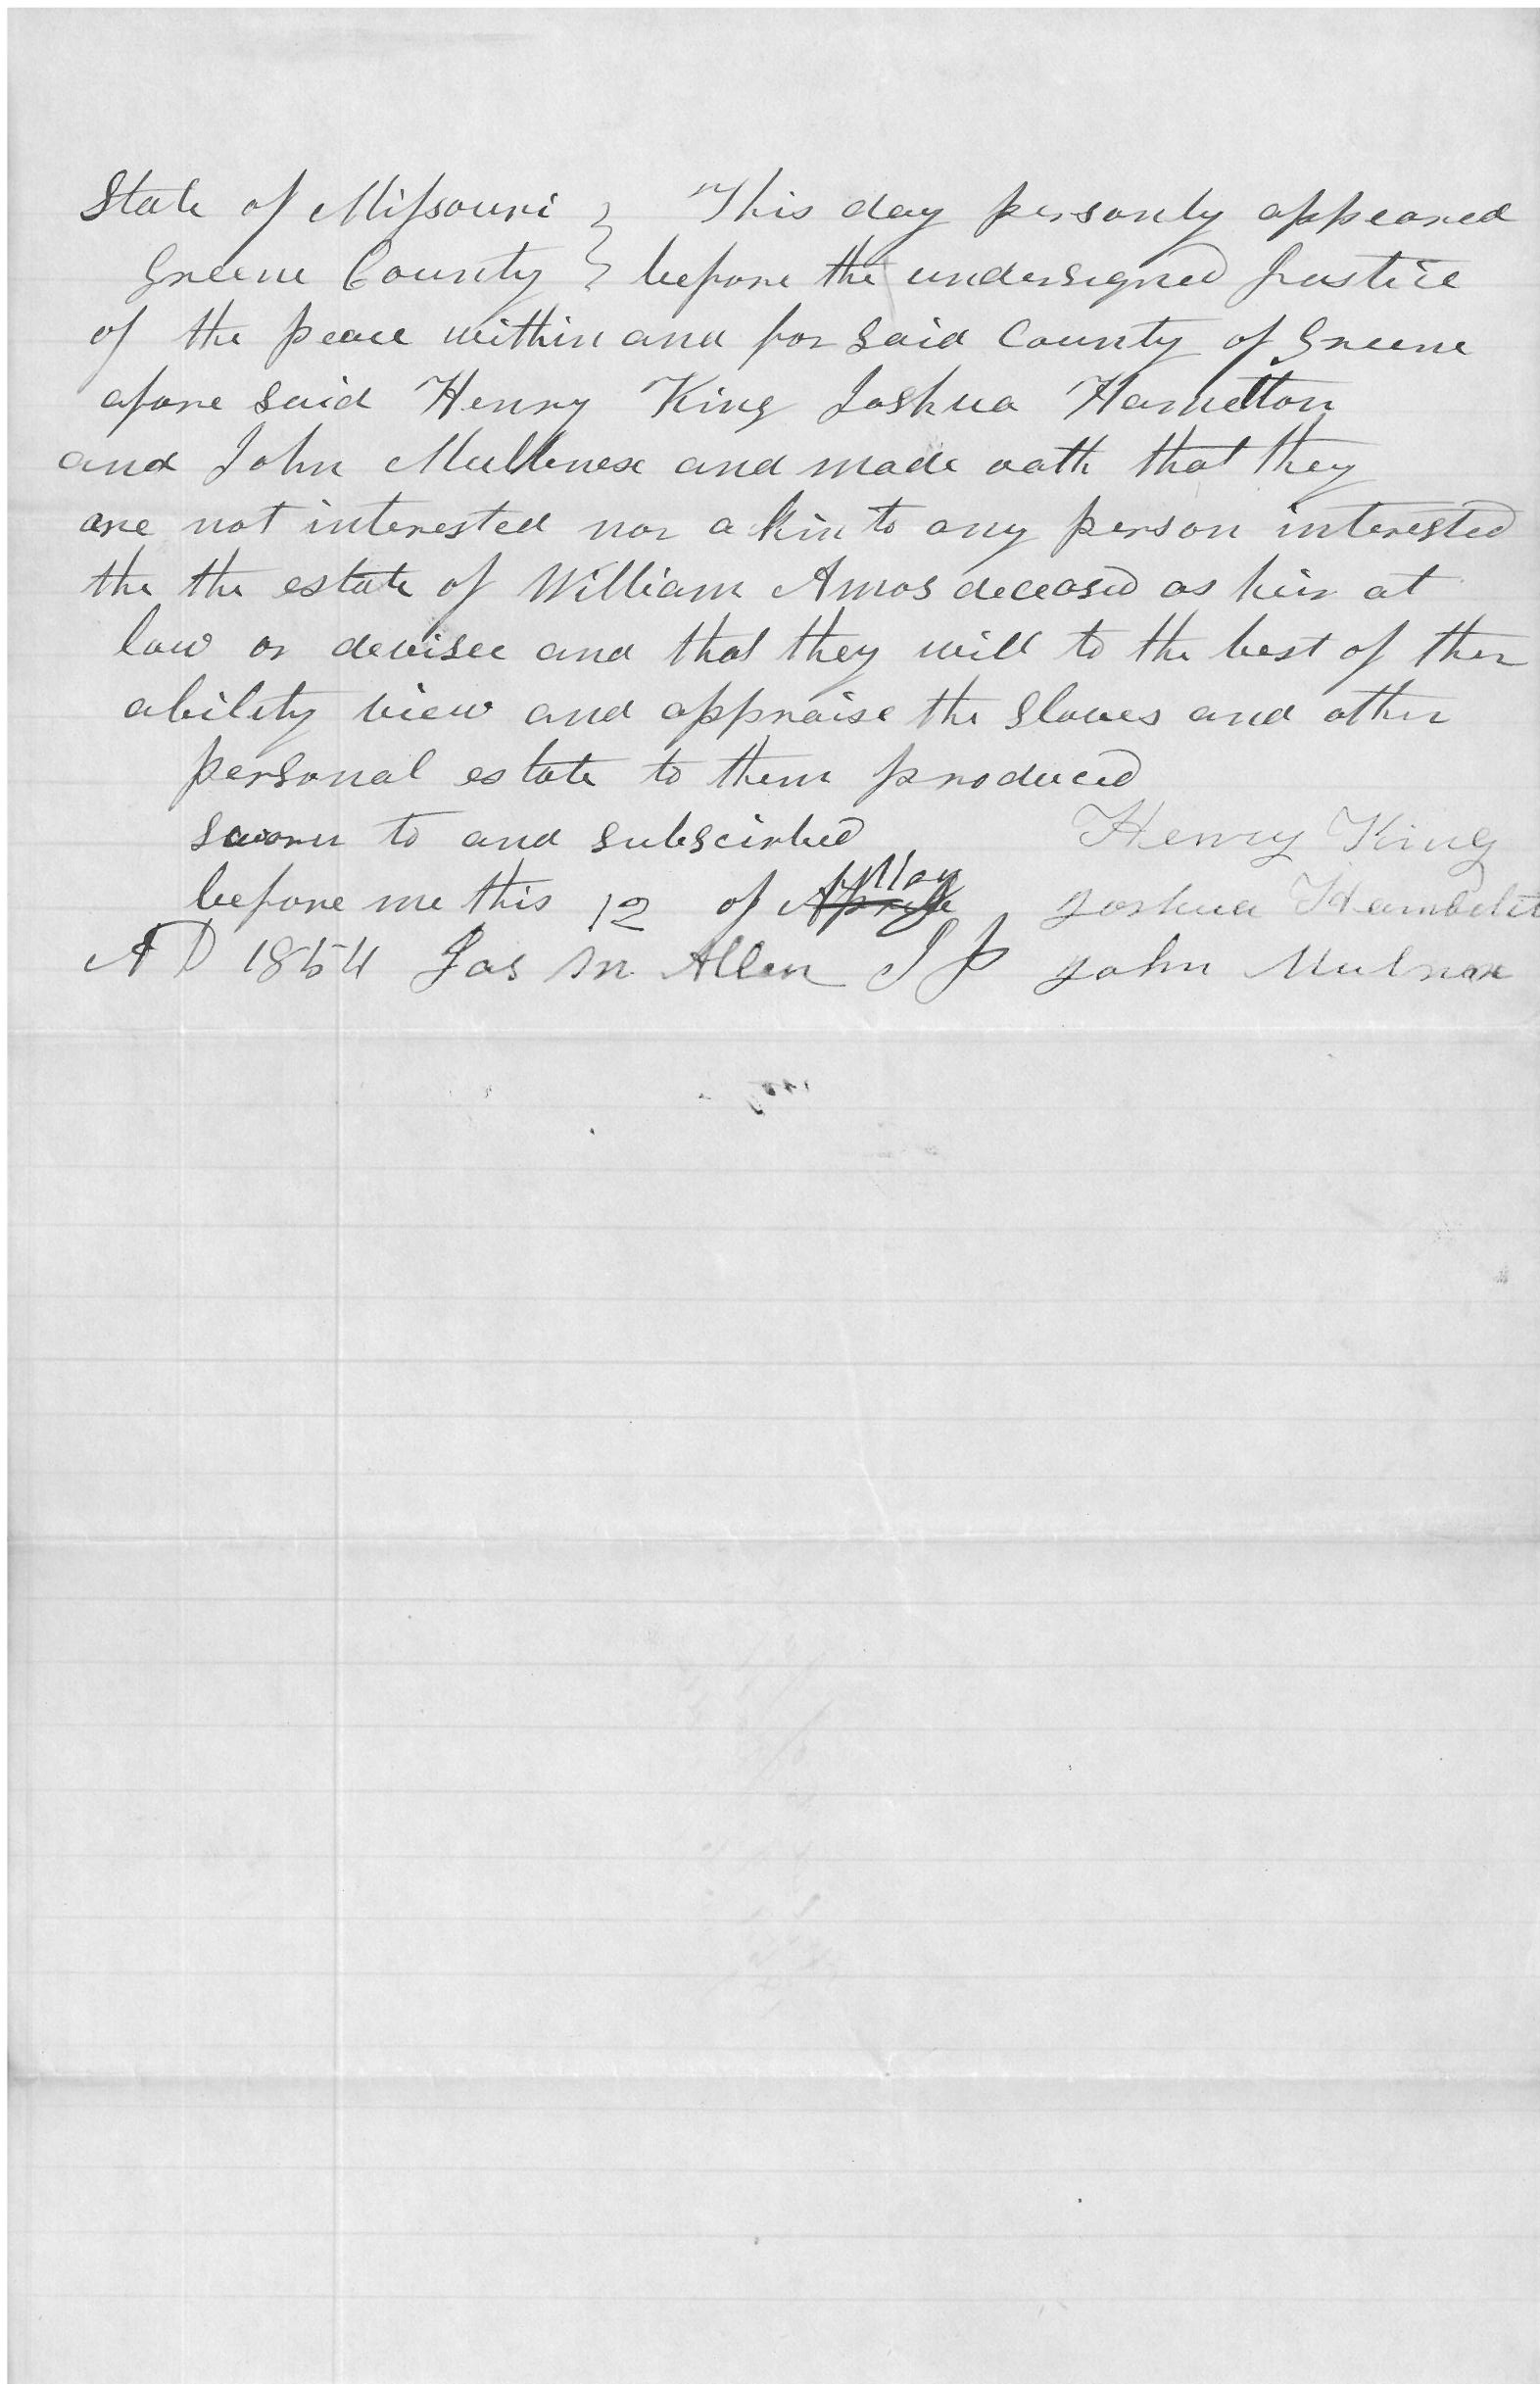 State of Missouri } This day personly appeared
Greene County } before the undersigned Justice
of the peace within and for said County of Greene
afore said Henry King Joshua Hamelton
and John Mullenex and made oath that they
are not interested nor a kin to any person interested
the the estate of William Amos deceased as heir at
law or devisee and that they will to the best of ther
ability view and appraise the slaves and other
personal estate to them produced
sworn to and subscirbed Henry King
before me this 12 of April May Joshua
A D 1854 Jas M Allen J P John Mulnax